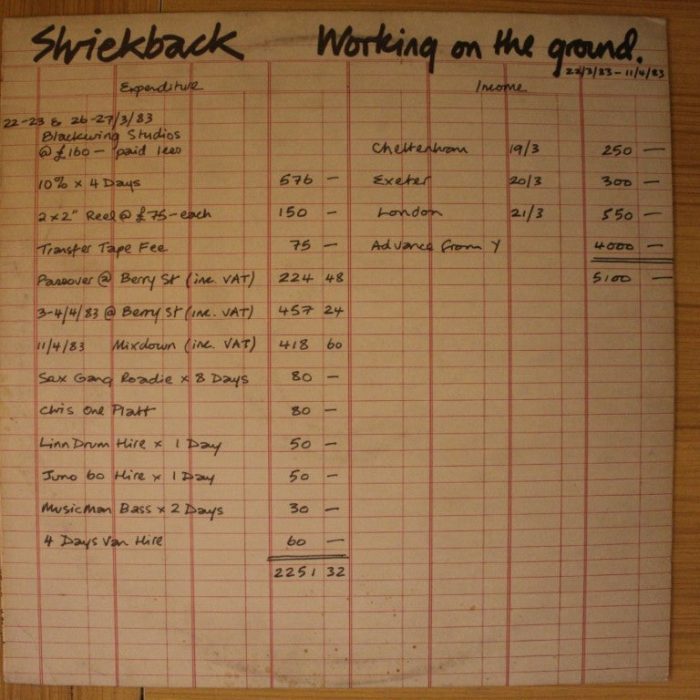 Shriekback Working on the ground.
22/3/83 - 11/4/83
Expenditure Income
22-23 & 26-27/3/83
Blackwing Studios
@ £160 - paid less Cheltenham 19/3 250 —
10% x 4 Days 576 — Exeter 20/3 300 —
2 x 2" Reel @ £75 - each 150 — London 21/3 550 —
Transfer Tape Fee 75 — Advance from Y 4000 —
@ Berry St (inc. VAT) 224 48 5100 —
3-4/4/83 @ Berry St (inc. VAT) 457 24
11/4/83 Mixdown (inc. VAT) 418 60
Sax Gang Roadie x 8 Days 80 —
Chris One Platt 80 —
LinnDrum Hire x 1 Day 50 —
Juno 60 Hire x 1 Day 50 —
MusicMan Bass x 2 Days 30 —
4 Days Van Hire 60 —
2251 32